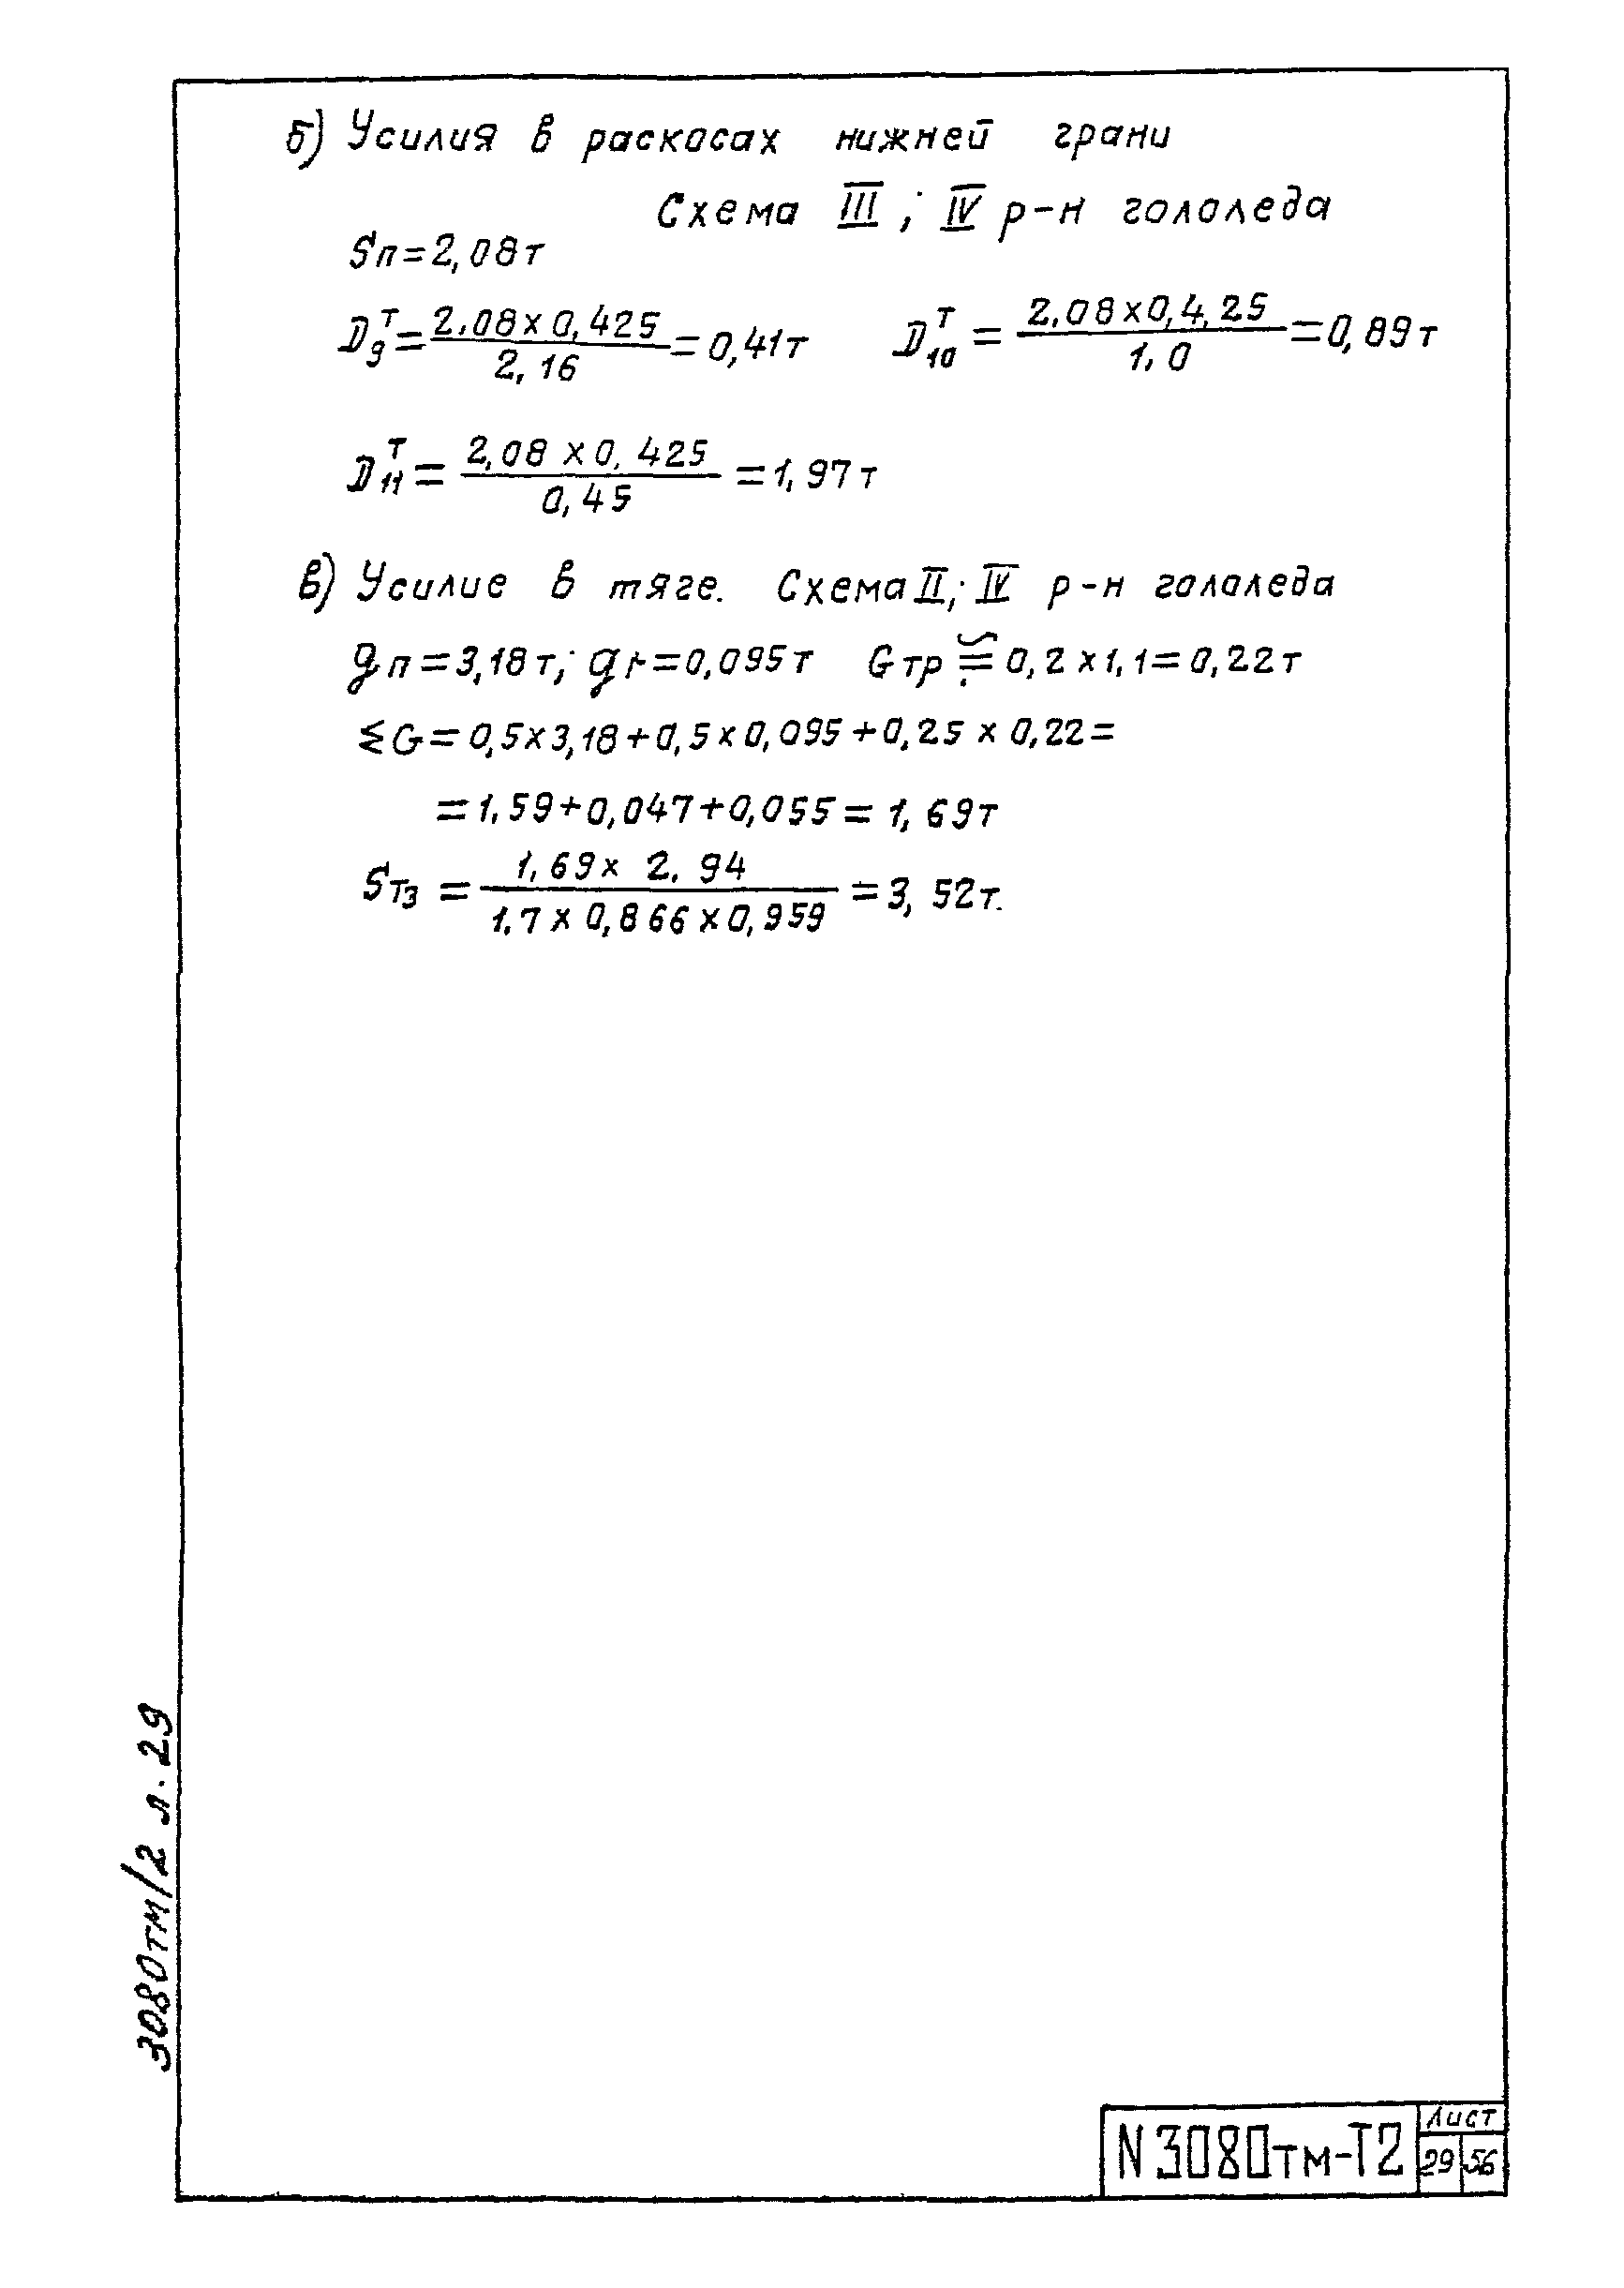 б) Усилия в раскосах нижней грани
Схема III; IV р-н гололеда
Sп=2,08т
D₉ᵀ = 2,08 x 0,425 / 2,16 = 0,41т   D₁₀ᵀ = 2,08 x 0,4,25 / 1,0 = 0,89т
D₁₁ᵀ = 2,08 x 0,425 / 0,45 = 1,97т
в) Усилие в тяге. Схема II; IV р-н гололеда
gп=3,18т; gг=0,095т   Gтр ≅ 0,2 x 1,1 = 0,22т
ΣG = 0,5x3,18+0,5x0,095+0,25 x 0,22=
=1,59+0,047+0,055 = 1,69т
Sт₃ = 1,69 x 2,94 / 1,7 x 0,866 x 0,959 = 3,52т.
3080тм/2 л. 29
N 3080тм-Т2
Лист
29 56